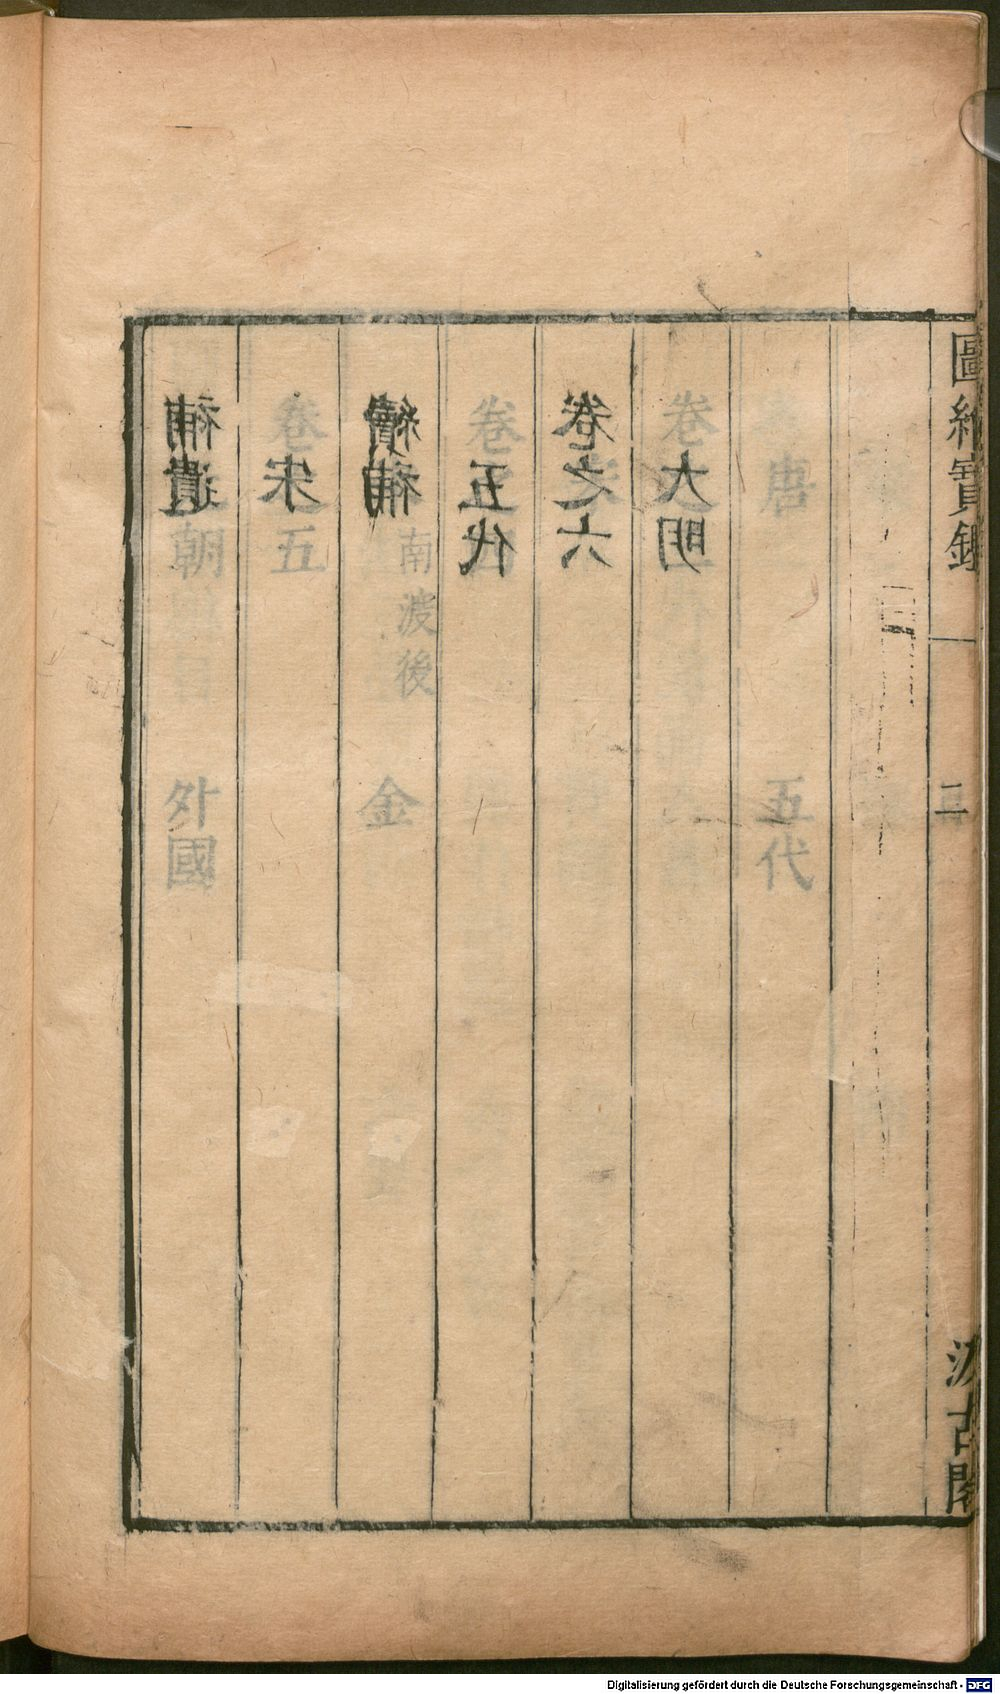 圖繪寶鑑 二 汲古閣
補遺
宋
續補
五代
卷之六
大明
唐 五代
卷
卷
南渡後 金
卷 五
朝 外國
Digitalisierung gefördert durch die Deutsche Forschungsgemeinschaft - DFG